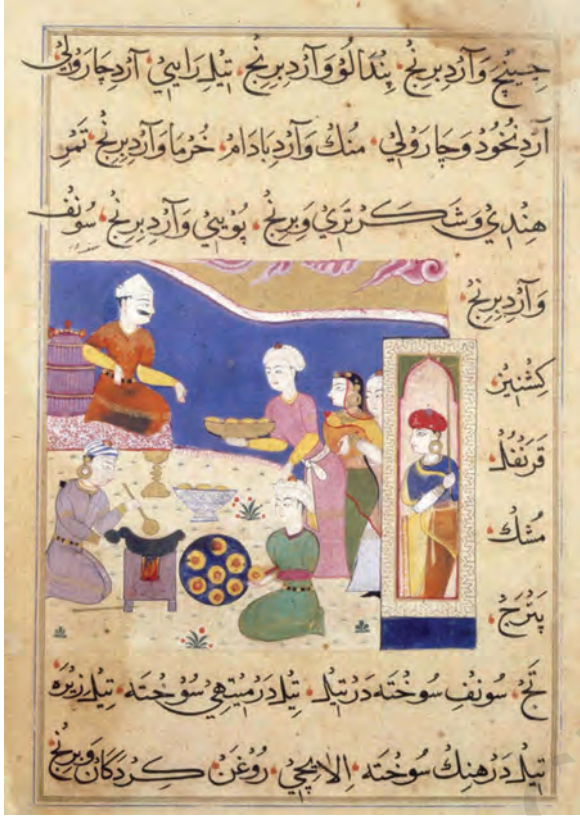 چینچ وَآردِ برِنج، پنْدالُو وَآردِ برِنج، تیل رَایِي، آردِ چارَولِي
آردِ نخُود وَچارَولِي، منك وَآردِ بادَام، خُرما وَآردِ برِنج، تَمرِ
هِنْدِي وَشَكَرتَرِي وَبرِنج، پُویي وَآردِ برِنج، سُونف
وَآردِ برِنج،
كِشْنِیز،
قَرَنفُل،
مُشْك،
پَتْرَج،
تَج، سُونف سُوخْتَه دَر تیل، تیل دَر مِیتهِي سُوخْتَه، تیل زِیرَه
تیل دَر هِنك سُوخْتَه، اِلاَیچِي، رُوغَن كِردَكان وَبرِنج